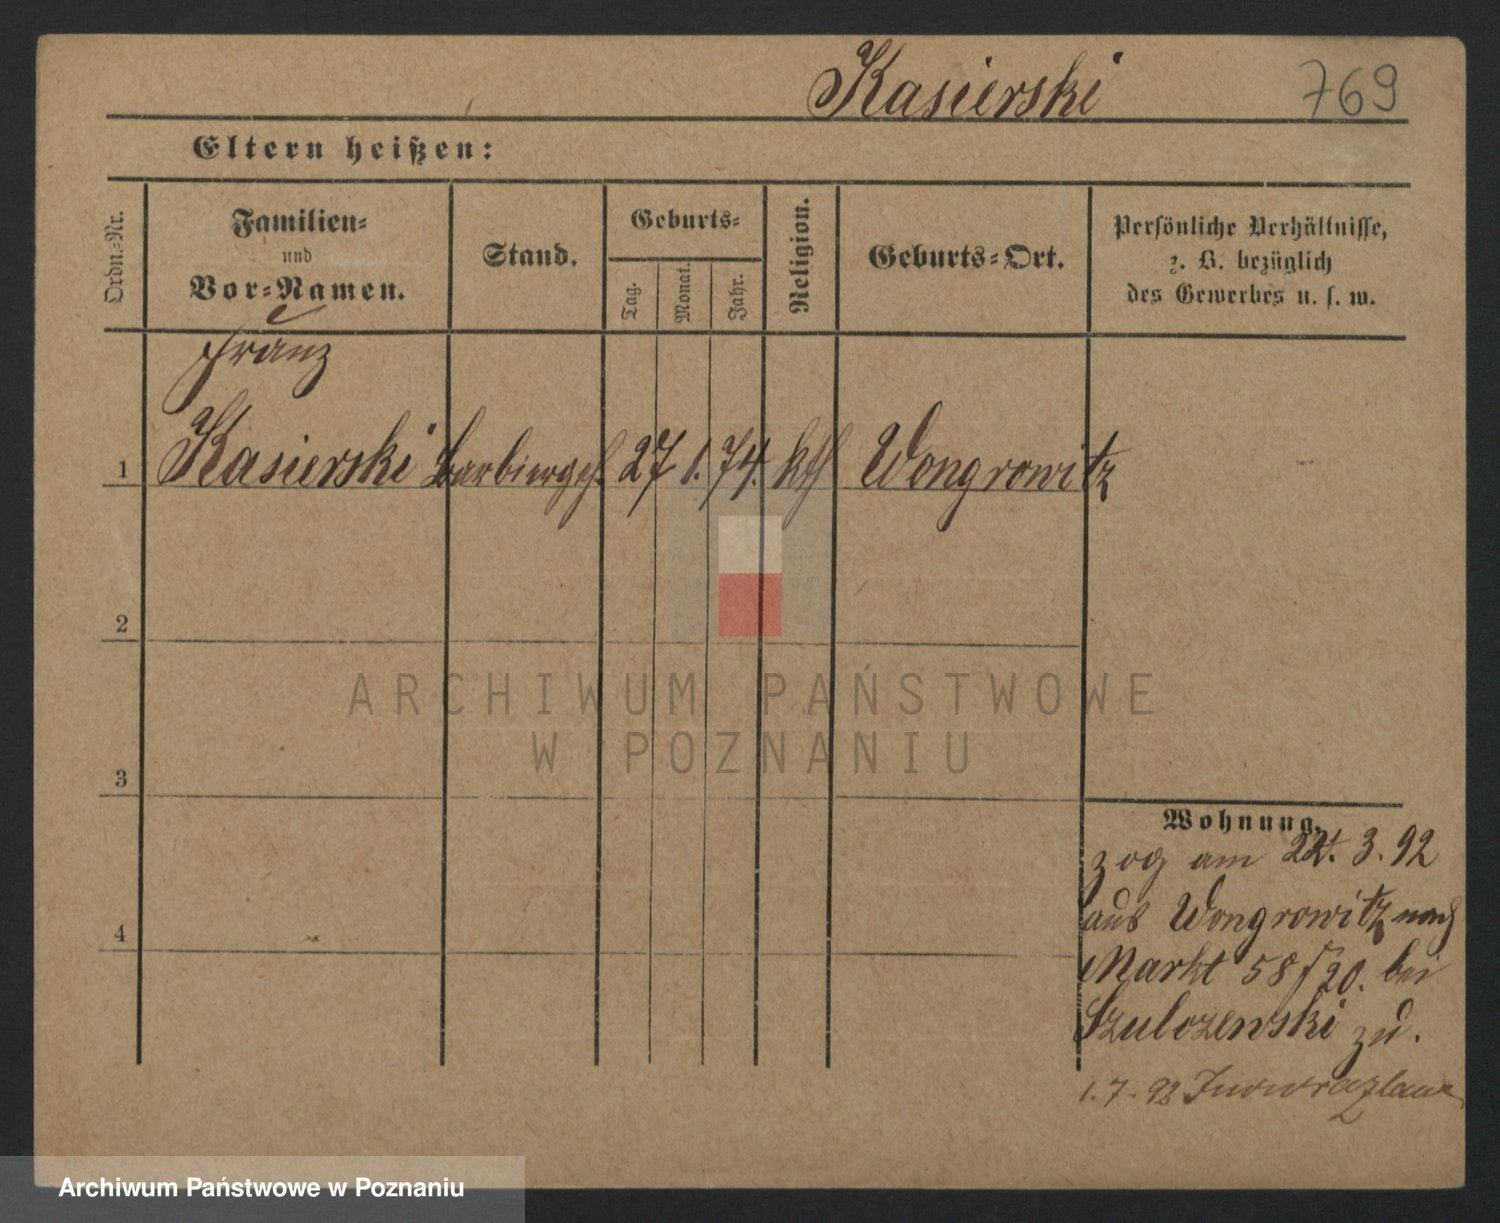 Kasierski 769
Eltern heißen:
Ordn.-Nr.
Familien-
und
Vor-Namen.
Stand.
Geburts-
Tag.
Monat.
Jahr.
Religion.
Geburts-Ort.
Persönliche Verhältnisse,
z. B. bezüglich
des Gewerbes u. s. w.
Franz
1 Kasierski Barbiergeh. 27 1. 74. kth Wongrowitz
2
ARCHIWUM PAŃSTWOWE
W POZNANIU
3
Wohnung.
zog am 3. 92
aus Wongrowitz nach
4
Markt 58/20. bei
zu.
1. 7. 92 Inowrazlaw
Archiwum Państwowe w Poznaniu